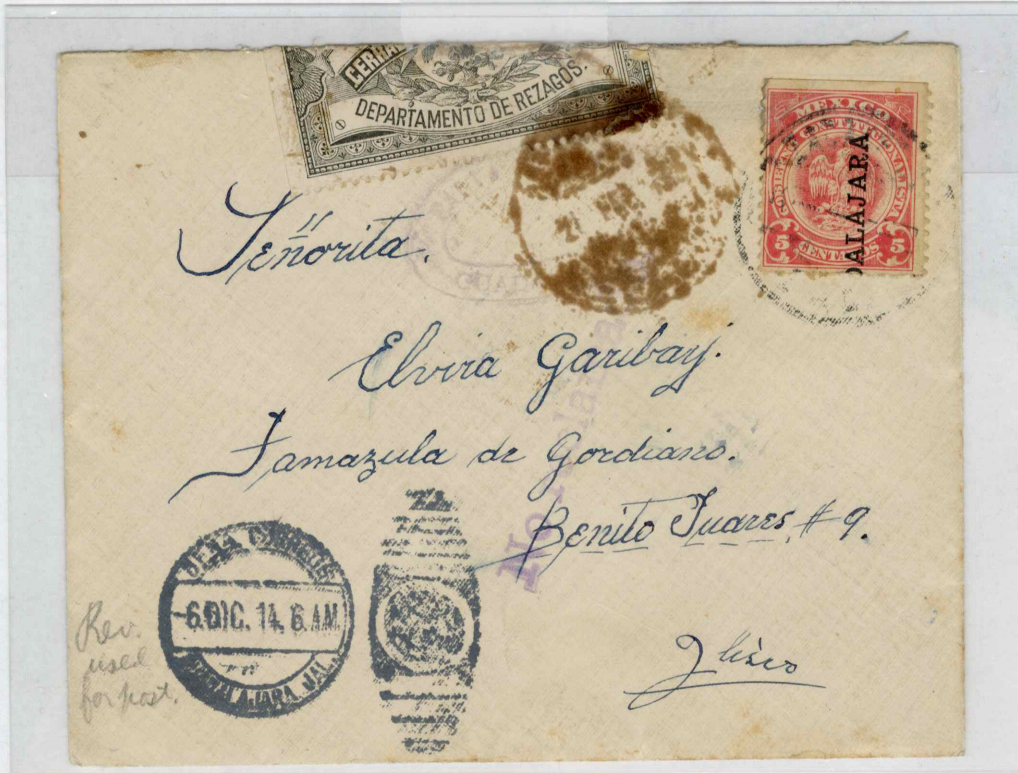 DEPARTAMENTO DE REZAGOS.
MEXICO
GOBIERNO CONSTITUCIONALISTA
5 CENTAVOS 5
DALAJARA
Señorita.
Elvira Garibay.
Tamazula de Gordiano.
Benito Juares, # 9.
Jalisco
CORREOS
-6.DIC. 14. 6 A.M.
GUADALAJARA, JAL.
Rev.
used
for post.